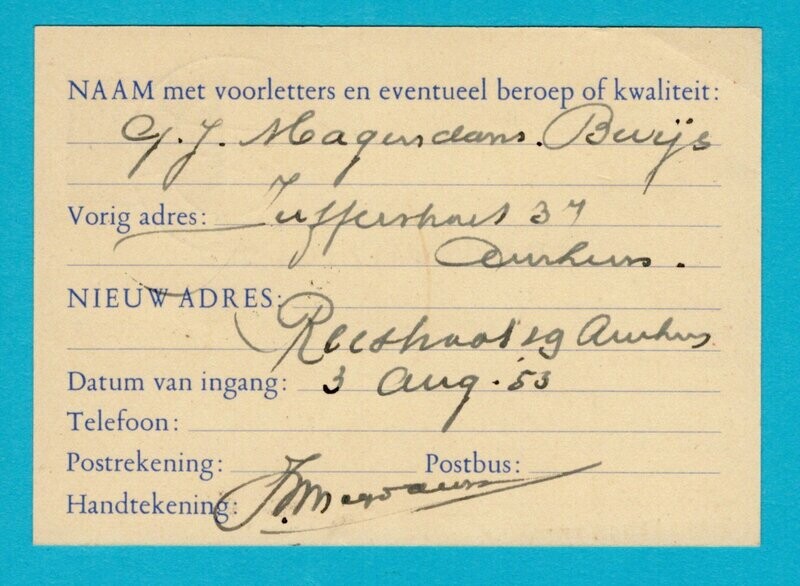 NAAM met voorletters en eventueel beroep of kwaliteit:
G. J. Magersdans. Buijs
Vorig adres: Jufferstraat 37
Arnhem.
NIEUW ADRES:
29 Arnhem
Datum van ingang: 3 Aug. '53
Telefoon:
Postrekening: Postbus:
Handtekening: